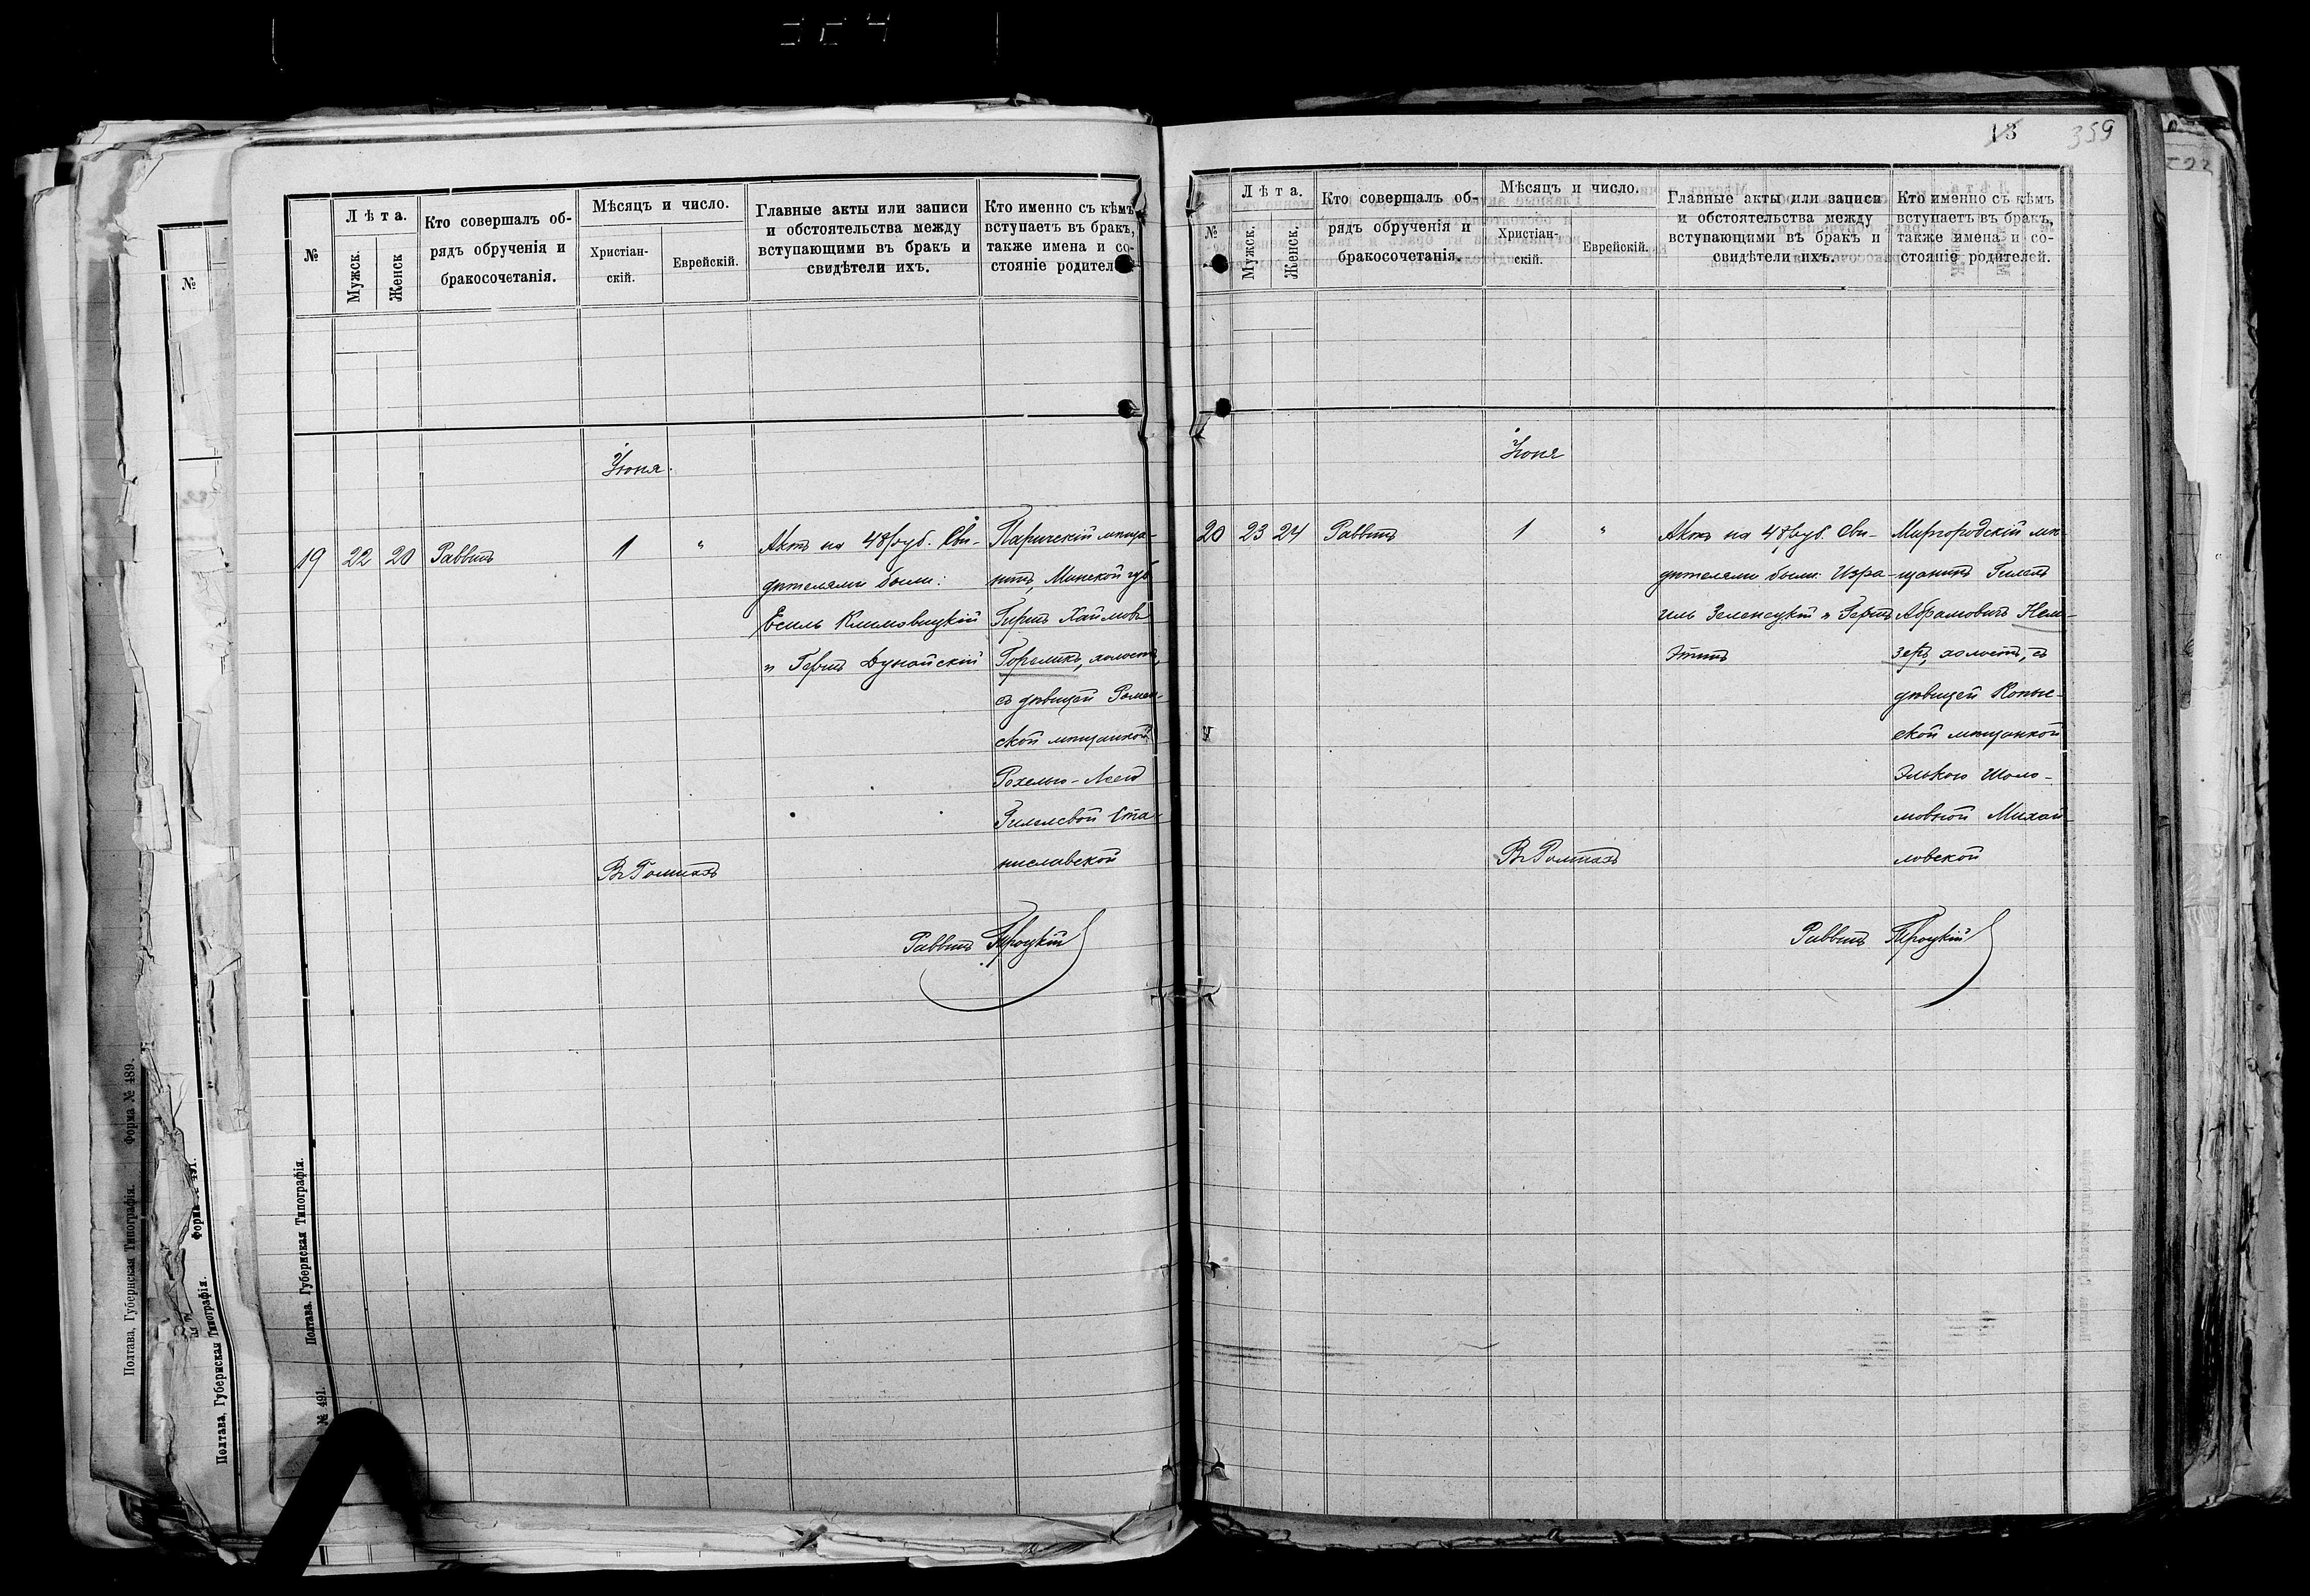 13
359
№
Лѣта.
Мужск.
Женск
Кто совершалъ об-
рядъ обрученія и
бракосочетанія.
Мѣсяцъ и число.
Христіан-
скій.
Еврейскій.
Главные акты или записи
и обстоятельства между
вступающими въ бракъ и
свидѣтели ихъ.
Кто именно съ кѣмъ
вступаетъ въ бракъ,
также имена и со-
стояніе родителей
Іюня
19 22 20 Раввинъ 1 " Актъ на 48 руб. Сви-
дѣтелями были:
Есиль Климовицкій
и Гершъ Дунайскій
Паричскій мѣща-
нинъ, Минской губ
Гиршъ Хаймовъ
Гореликъ, холостъ,
съ дѣвицей Ромен-
ской мѣщанкой
Рохелью-Леею
Гилелевой Ста-
ниславской
Въ Ромнахъ
Раввинъ Троцкій
№
Лѣта.
Мужск.
Женск.
Кто совершалъ об-
рядъ обрученія и
бракосочетанія.
Мѣсяцъ и число.
Христіан-
скій.
Еврейскій.
Главные акты или записи
и обстоятельства между
вступающими въ бракъ и
свидѣтели ихъ.
Кто именно съ кѣмъ
вступаетъ въ бракъ,
также имена и со-
стояніе родителей.
Іюня
20 23 24 Раввинъ 1 " Актъ на 48 руб. Сви-
дѣтелями были: Изра-
иль Зеленецкій и Гершъ
Этинъ
Миргородскій мѣ-
щанинъ Гилель
Абрамовичъ Нем-
зеръ, холостъ, съ
дѣвицей Копыс-
ской мѣщанкой
Элькою Шоло-
мовной Михай
ловской
Въ Ромнахъ
Раввинъ Троцкій
Полтава, Губернская Типографія. Форма № 489.
Полтава, Губернская Типографія.
№ 491. Полтава. Губернская Типографія.
№